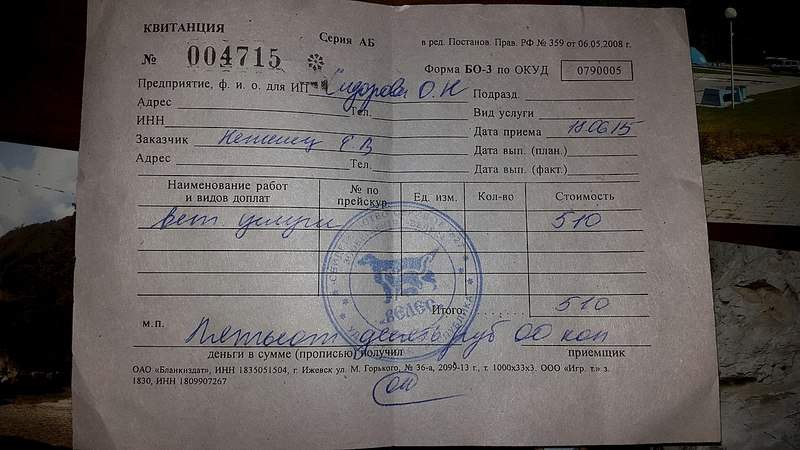 КВИТАНЦИЯ
Серия АБ
в ред. Постанов. Прав. РФ № 359 от 06.05.2008 г.
№ 004715
Форма БО-3 по ОКУД 0790005
Предприятие, ф. и. о. для ИП Сидорова О.Н
Подразд.
Адрес Тел.
Вид услуги
ИНН
Дата приема 18.06.15
Заказчик Е.В
Дата вып. (план.)
Адрес Тел.
Дата вып. (факт.)
Наименование работ и видов доплат № по прейскур. Ед. изм. Кол-во Стоимость
вет услуги 510
Итого 510
"ВЕЛЕС"
м.п. Пятьсот десять руб 00 коп
деньги в сумме (прописью) получил приемщик
ОАО «Бланкиздат», ИНН 1835051504, г. Ижевск ул. М. Горького, № 36-а, 2099-13 г., т. 1000х33х3. ООО «Игр. т.» з.
1830, ИНН 1809907267